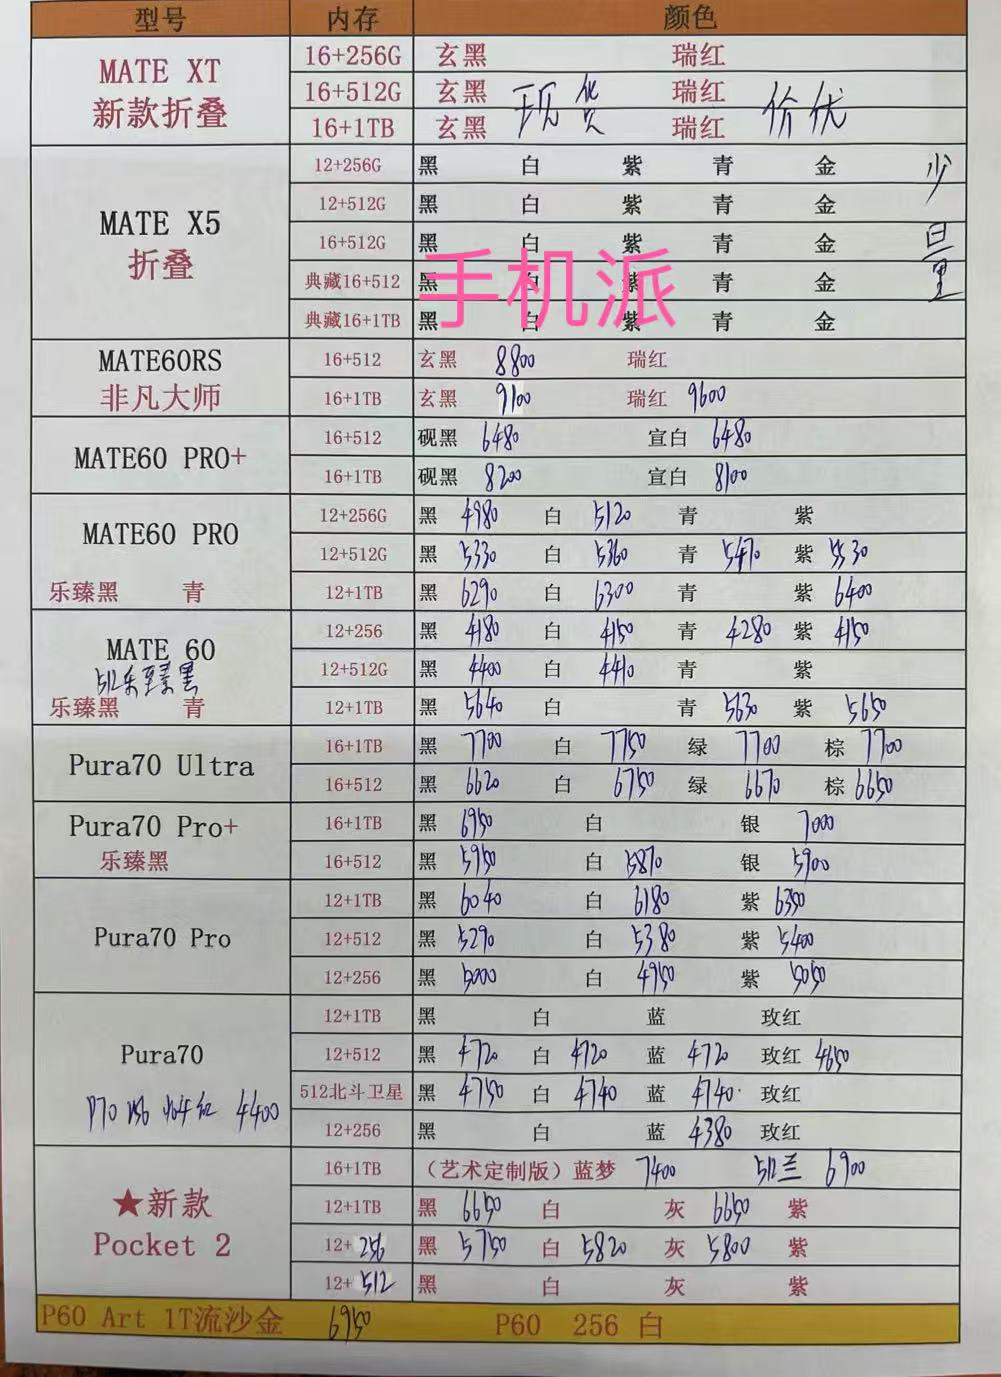 型号 内存 颜色
MATE XT 新款折叠 16+256G 玄黑 瑞红
16+512G 玄黑 现货 瑞红 价优
16+1TB 玄黑 瑞红
MATE X5 折叠 12+256G 黑 白 紫 青 金 少
12+512G 黑 白 紫 青 金
16+512G 黑 白 紫 青 金 量
典藏16+512 黑 白 紫 青 金
典藏16+1TB 黑 白 紫 青 金
手机派
MATE60RS 非凡大师 16+512 玄黑 8800 瑞红
16+1TB 玄黑 9100 瑞红 9600
MATE60 PRO+ 16+512 砚黑 6480 宣白 6480
16+1TB 砚黑 8200 宣白 8100
MATE60 PRO 12+256G 黑 4980 白 5120 青 紫
12+512G 黑 5330 白 5360 青 5470 紫 5530
乐臻黑 青 12+1TB 黑 6290 白 6300 青 紫 6400
MATE 60 12+256 黑 4180 白 4150 青 4280 紫 4150
512乐臻黑 12+512G 黑 4400 白 4410 青 紫
乐臻黑 青 12+1TB 黑 5640 白 青 5630 紫 5650
Pura70 Ultra 16+1TB 黑 7700 白 7750 绿 7700 棕 7700
16+512 黑 6620 白 6750 绿 6670 棕 6650
Pura70 Pro+ 16+1TB 黑 6950 白 银 7000
乐臻黑 16+512 黑 5950 白 5870 银 5900
Pura70 Pro 12+1TB 黑 6040 白 6180 紫 6350
12+512 黑 5290 白 5380 紫 5400
12+256 黑 5000 白 4950 紫 5050
Pura70 12+1TB 黑 白 蓝 玫红
12+512 黑 4720 白 4720 蓝 4720 玫红 4650
P70 256 4400 512北斗卫星 黑 4750 白 4740 蓝 4740 玫红
12+256 黑 白 蓝 4380 玫红
★新款 Pocket 2 16+1TB （艺术定制版）蓝梦 7400 512兰 6900
12+1TB 黑 6650 白 灰 6650 紫
12+256 黑 5750 白 5820 灰 5800 紫
12+512 黑 白 灰 紫
P60 Art 1T流沙金 6950 P60 256 白